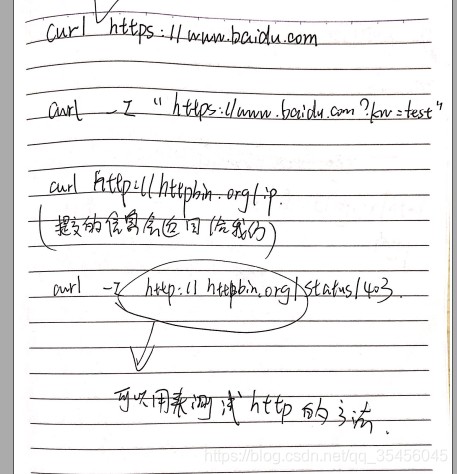 curl https://www.baidu.com
curl -I "https://www.baidu.com?kw=test"
curl http://httpbin.org/ip.
(提交的信息会返回给我们)
curl -I http://httpbin.org/status/403.
可以用来测试http的方法.
https://blog.csdn.net/qq_35456045